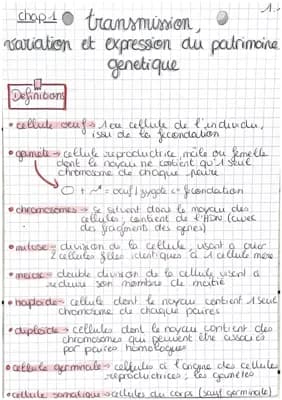 1.
chap 1 transmission,
variation et expression du patrimoine
genetique
Definitions
• cellule oeuf → 1ere cellule de l'individu,
issu de la fecondation
• gamete → cellule reproductrice, mâle ou femelle
dont le noyau ne contient qu'1 seul
chromosome de chaque paire
= oeuf / zygote ← fecondation
• chromosomes → se situent dans le noyau des
cellules, contient de l'ADN (avec
des fragments des genes)
• mitose → division de la cellule, visant a créer
2 cellules filles identiques à 1 cellule mere
• meiose → double division de la cellule visant a
reduire son nombre de moitié
• haploide → cellule dont le noyau contient 1 seul
chromosome de chaque paires
• diploide → cellules dont le noyau contient des
chromosomes qui peuvent être associés
par paires homologues
• cellule germinale → cellules à l'origine des cellules
reproductrices; les gametes
• cellule somatique → cellules du corps (sauf germinale)